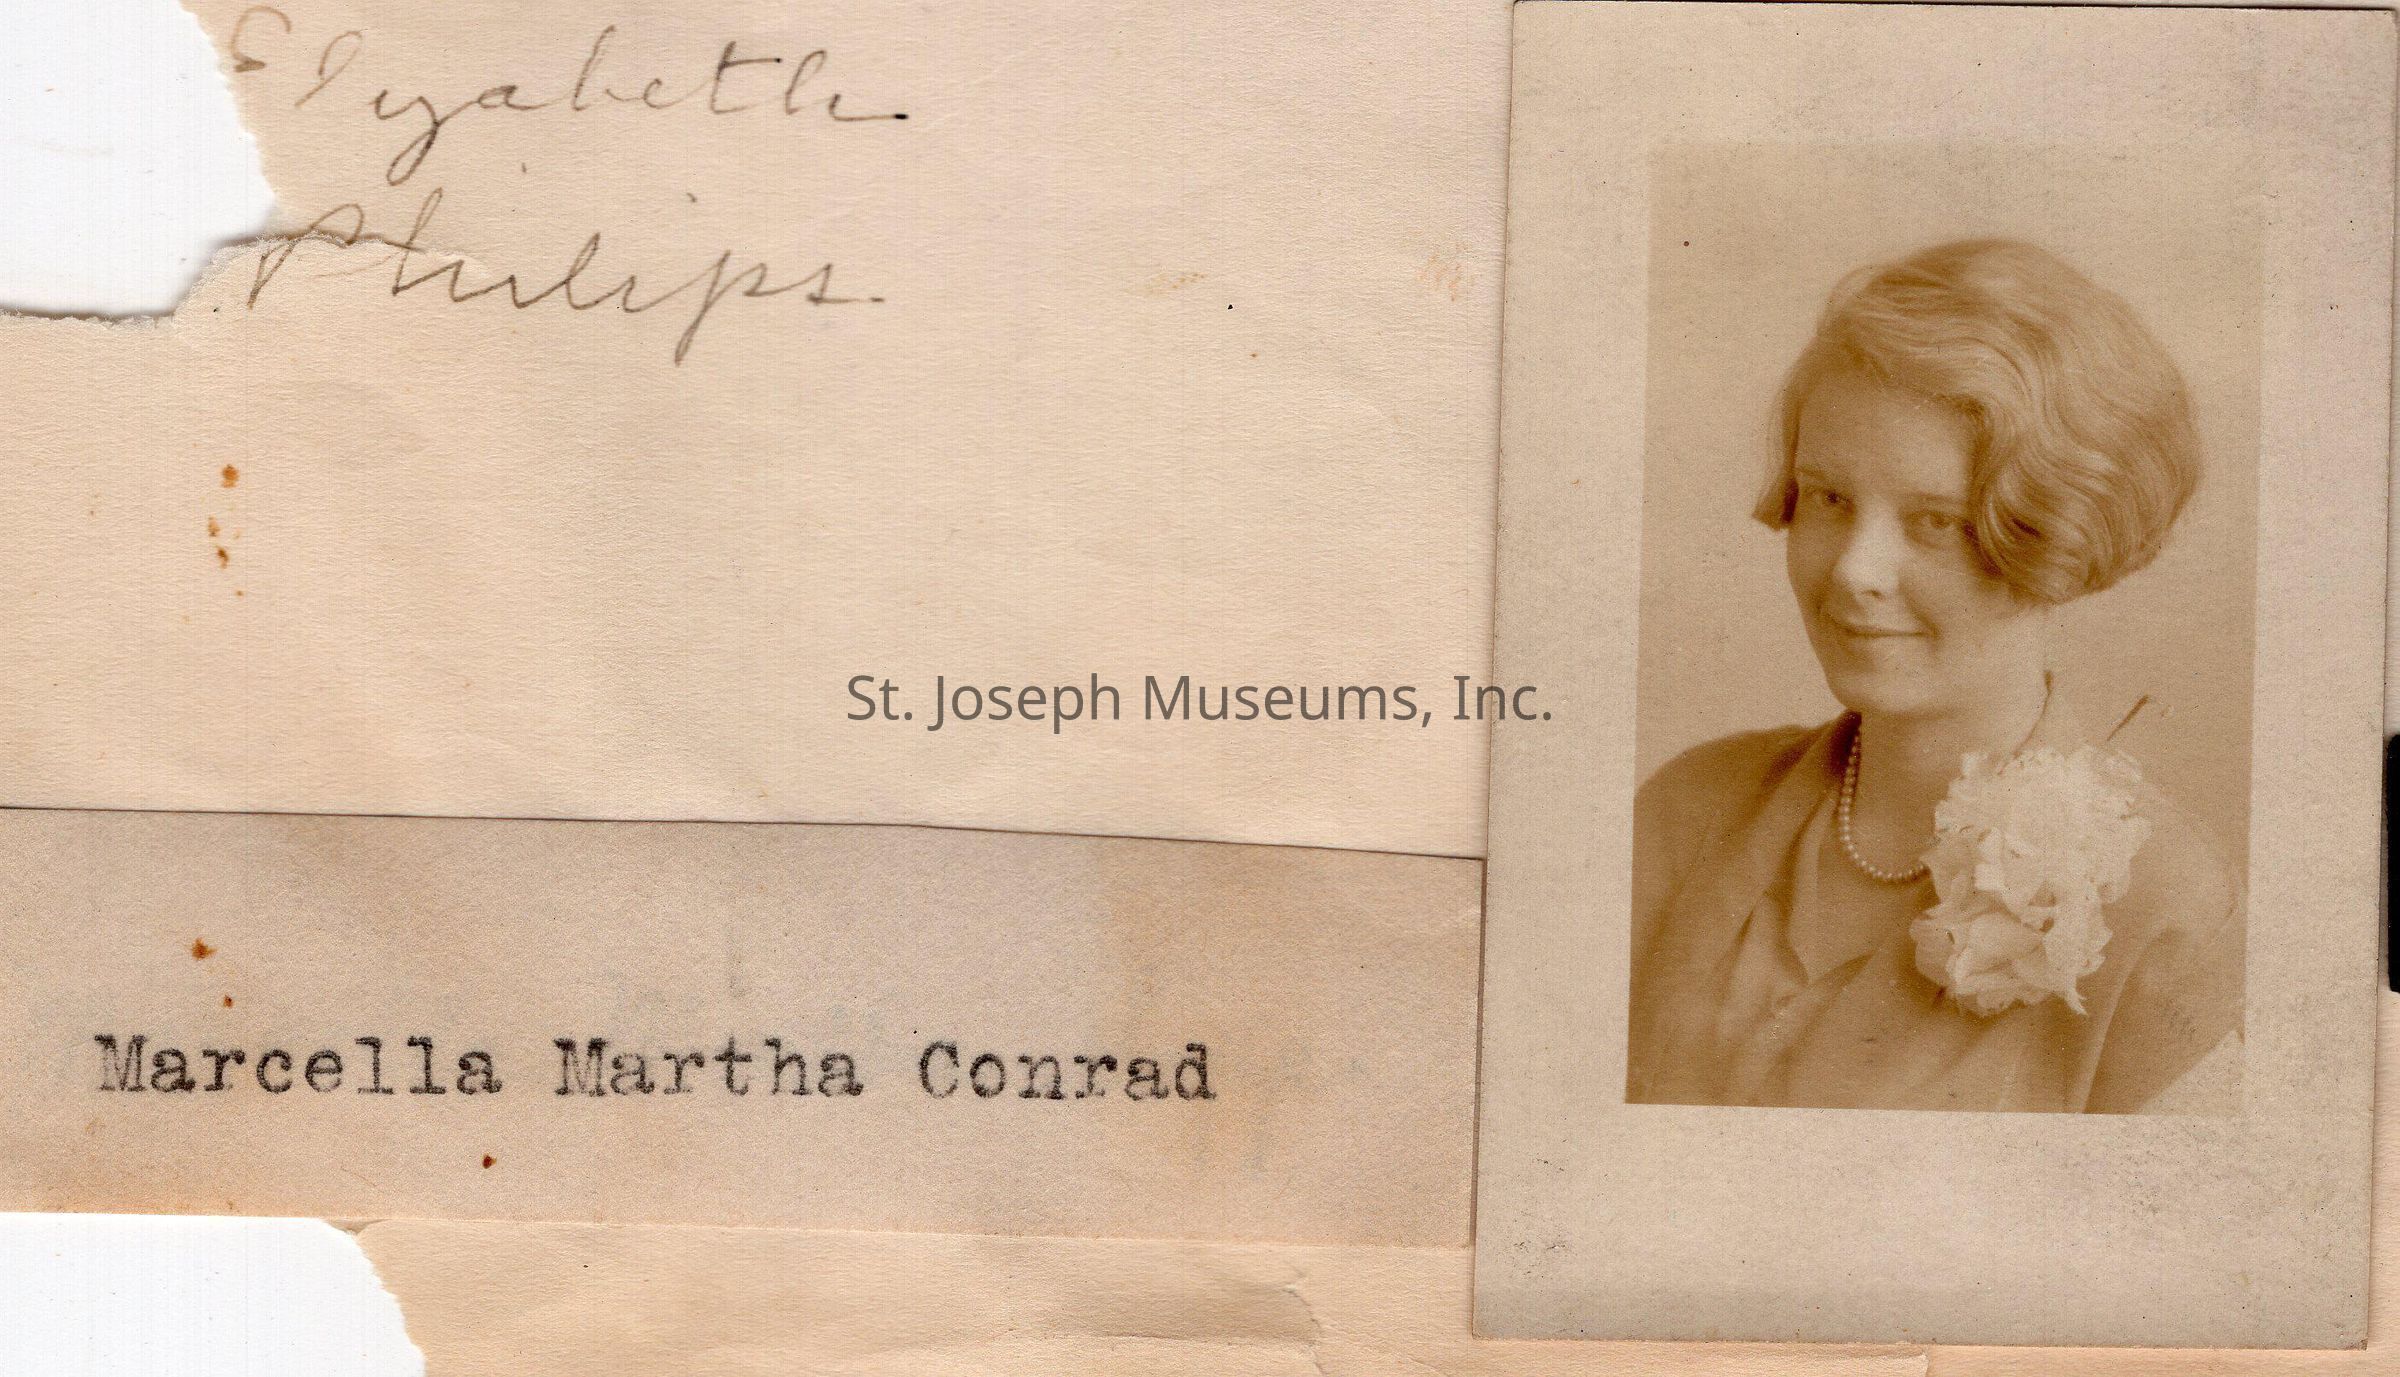 Elizabeth
Philips
St. Joseph Museums, Inc.
Marcella Martha Conrad